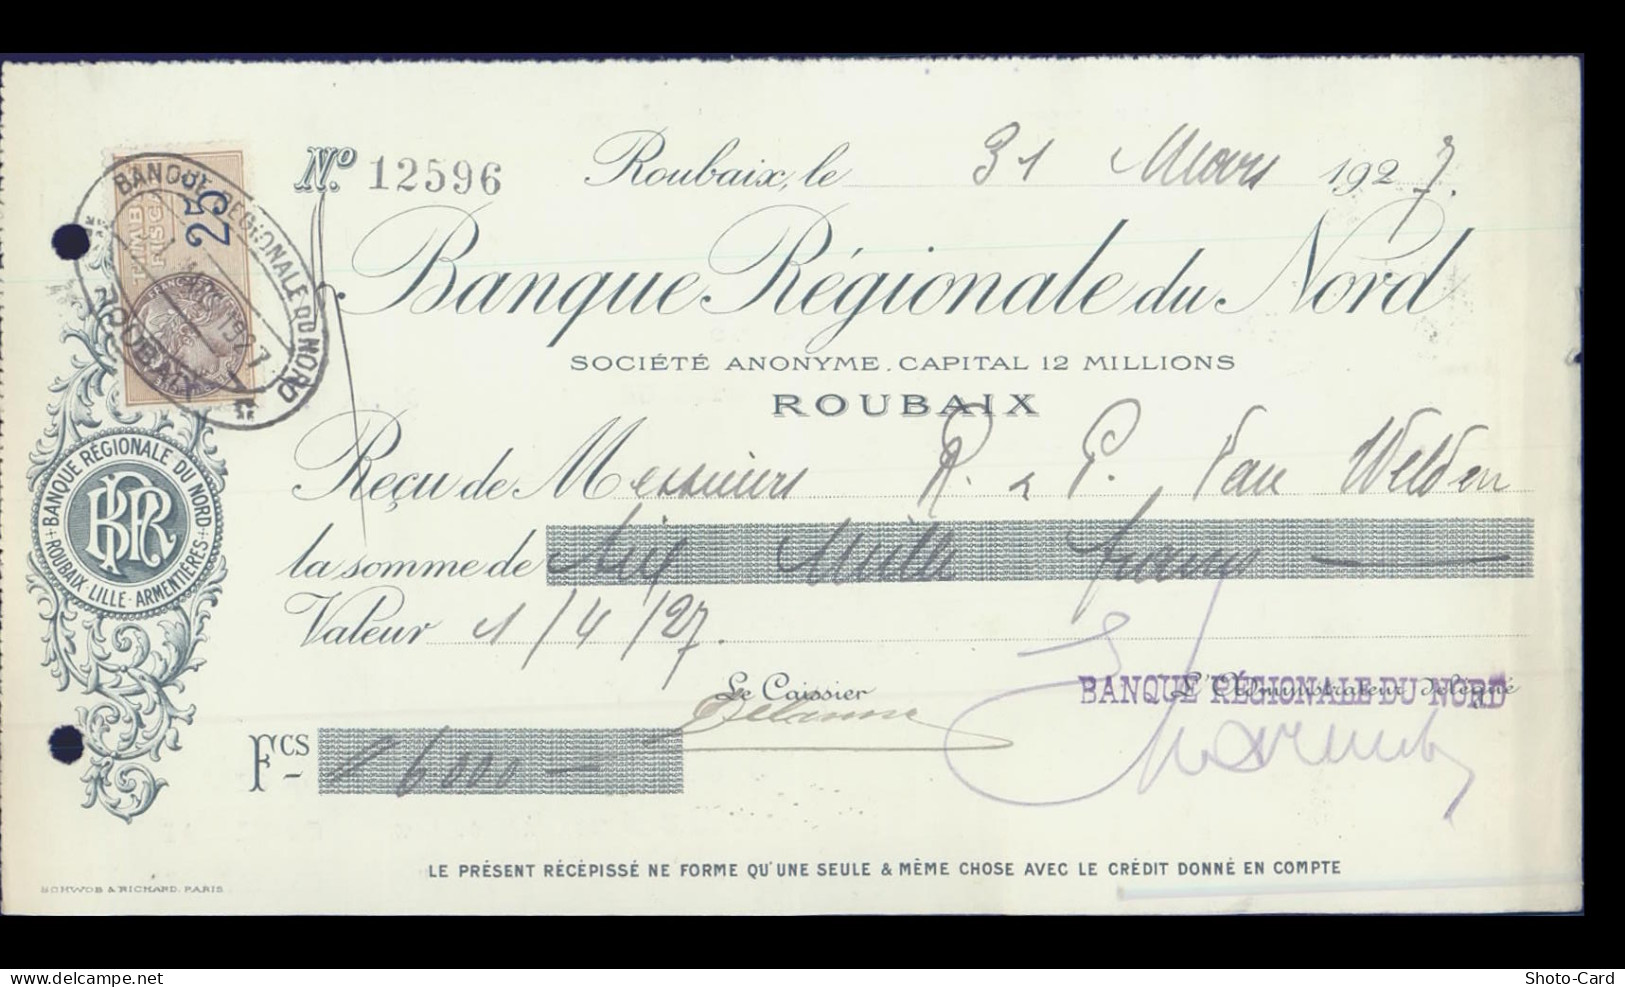 Nº 12596 Roubaix, le 31 Mars 1927.
Banque Régionale du Nord
SOCIÉTÉ ANONYME. CAPITAL 12 MILLIONS
ROUBAIX
Reçu de Messieurs R. & P. Van Welden
la somme de Six Mille francs
Valeur 1/4/27.
Le Caissier
L'Administrateur délégué
BANQUE RÉGIONALE DU NORD
Fcs 6000 —
LE PRÉSENT RÉCÉPISSÉ NE FORME QU'UNE SEULE & MÊME CHOSE AVEC LE CRÉDIT DONNÉ EN COMPTE
SCHWOB & RICHARD. PARIS
BANQUE RÉGIONALE DU NORD
ROUBAIX
1927
TIMB
FISC
25
BANQUE RÉGIONALE DU NORD
ROUBAIX - LILLE - ARMENTIÈRES
BRN
www.delcampe.net
Shoto-Card